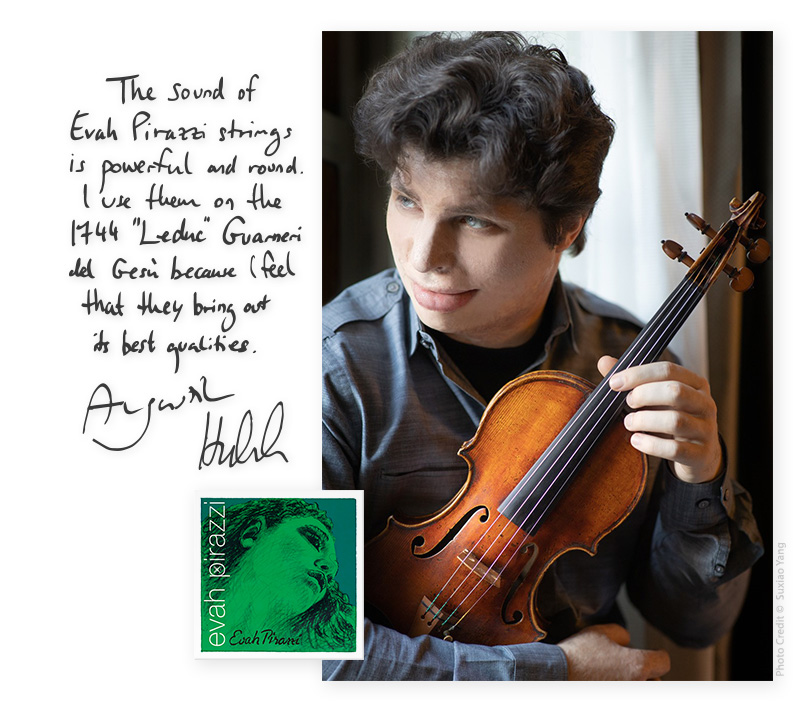 The sound of
Evah Pirazzi strings
is powerful and round.
I use them on the
1744 "Leduc" Guarneri
del Gesù because I feel
that they bring out
its best qualities.
Augustin
Hadelich
evah pirazzi
Evah Pirazzi
Photo Credit © Suxiao Yang